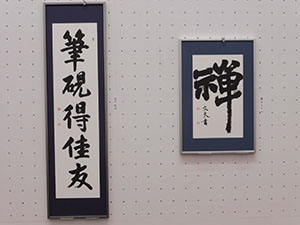 筆硯得佳友
禅